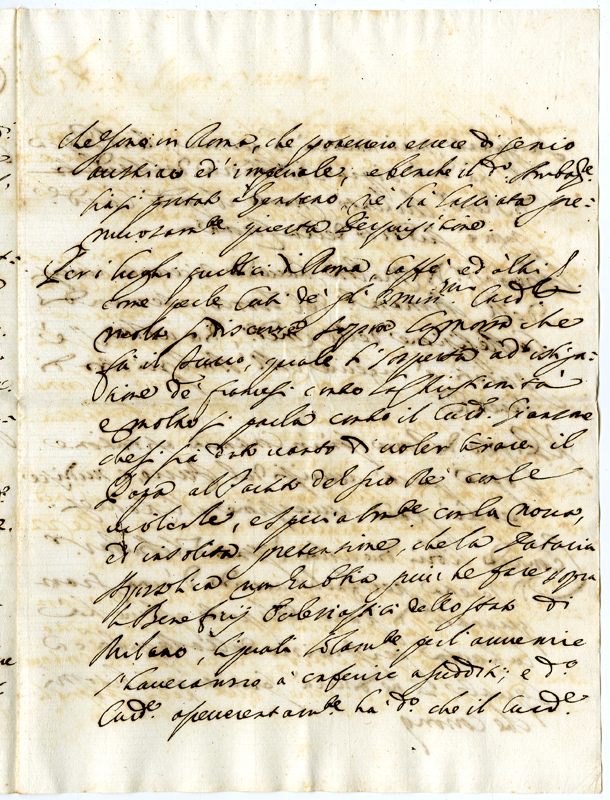 che sono in Roma, che potevero essere di genio
austriaco ed' imperiale, e benche il d.º Ambas.re
siasi portato a Genzano, ne ha lasciata pre-
murosam.te questa Requisitione.
Per i luoghi publici di Roma, Caffè ed' altri
come per le Case de gl' Emin.mi Card.li
molto si discorre sopra la mossa che
fà il Turco, quale si sospetta ad' istiga-
tione de francesi contro la Christianità
e molto si parla contro il Card. Giansone
che si sia dato vanto di voler tirare il
Papa al Partito del suo Rè con le
molestie, e specialm.te con la nova,
ed' insolita pretensione, che la Dataria
Apostolica non habbia più che fare sopra
li Beneficij Ecclesiastici dello stato di
Milano, li quali solam.te per l'avvenire
s' haveranno à conferire a sudditi; e d.º
Card.e asseverantem.te ha d.º che il Card.e